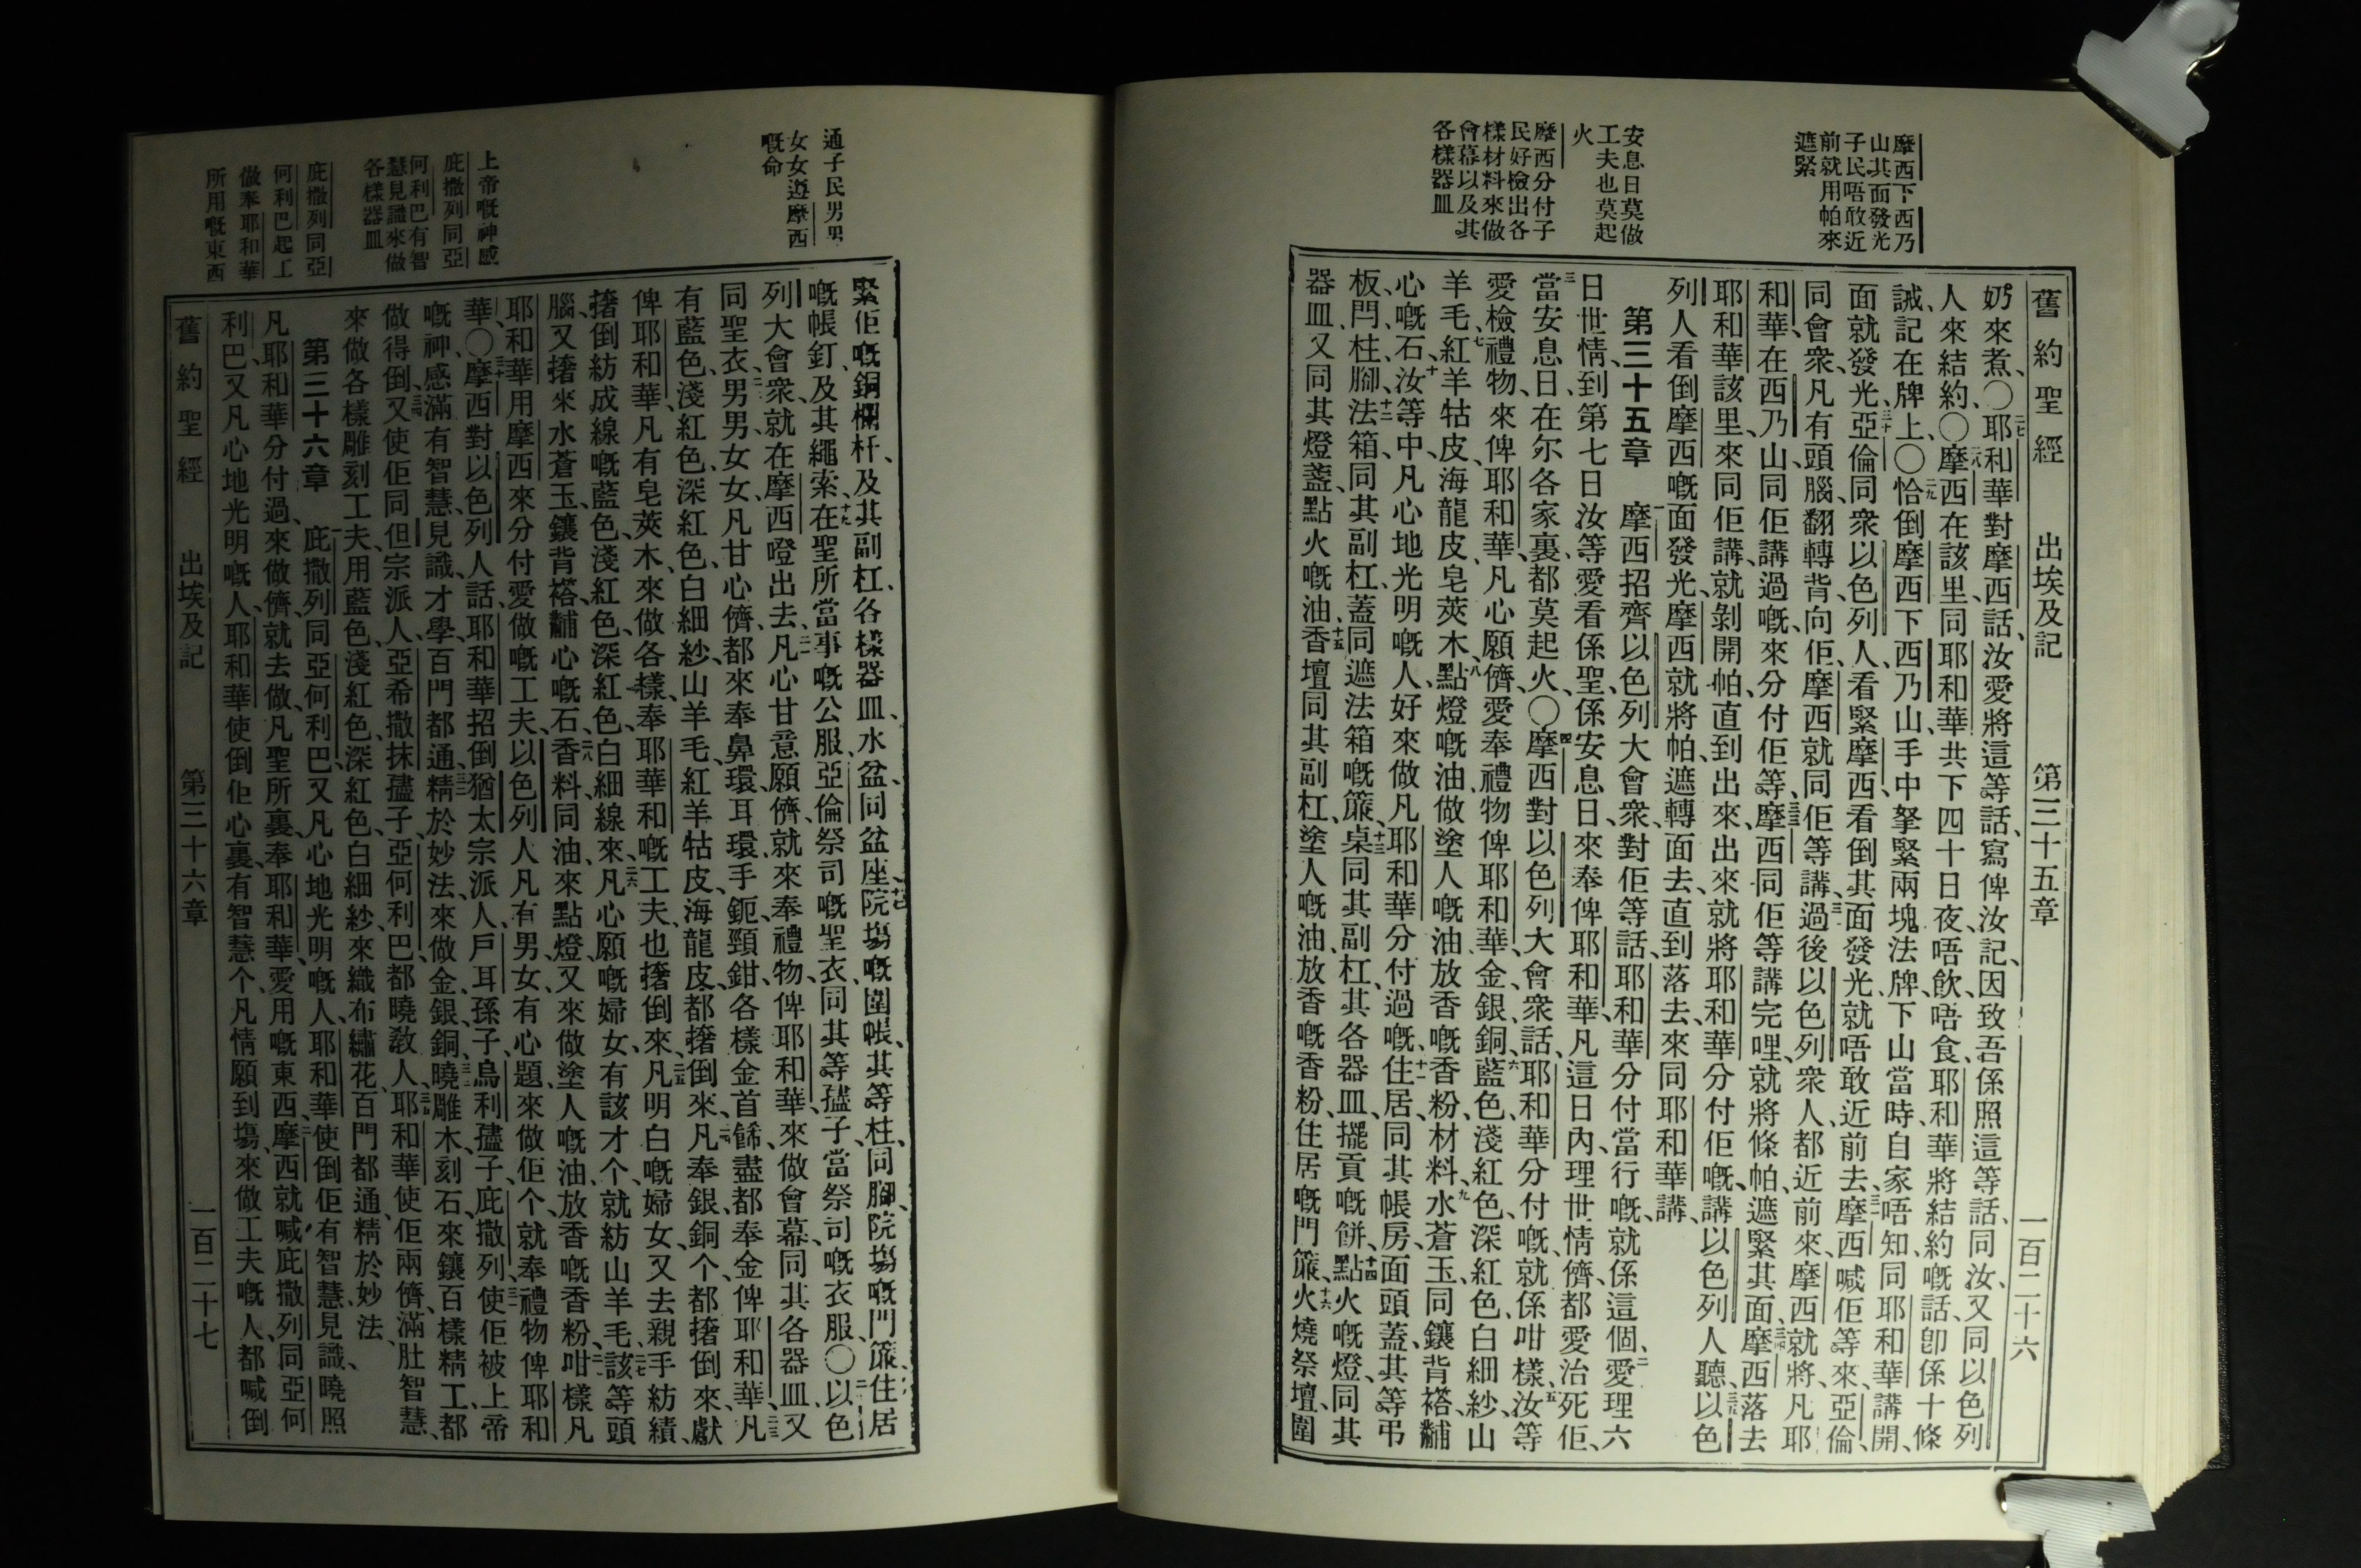 舊約聖經　出埃及記　第三十五章　一百二十六
摩西下西乃
山其面發光
子民唔敢近
前就用帕來
遮緊
安息日莫做
工夫也莫起
火
摩西分付子
民好檢出各
樣材料來做
會幕以及其
各樣器皿
奶來煮、〇二七耶和華對摩西話、汝愛將這等話、寫俾汝記、因致吾係照這等話、同汝、又同以色列
人來結約、〇二八摩西在該里、同耶和華共下四十日夜、唔飲、唔食、耶和華將結約嘅話、卽係十條
誡、記在牌上、〇二九恰倒摩西下西乃山、手中拏緊兩塊法牌、下山當時、自家唔知、同耶和華講開、
面就發光、三十亞倫同衆以色列人、看緊摩西、看倒其面發光、就唔敢近前去、三一摩西喊佢等來、亞倫
同會衆、凡有頭腦、翻轉背向佢、摩西就同佢等講、三二過後以色列衆人、都近前來、摩西就將凡耶
和華、在西乃山同佢講過嘅、來分付佢等、三三摩西同佢等講完哩、就將條帕、遮緊其面、三四摩西落去
耶和華該里、來同佢講、就剝開帕、直到出來、出來就將耶和華分付佢嘅、講以色列人聽、三五以色
列人看倒摩西嘅面發光、摩西就將帕、遮轉面去、直到落去、來同耶和華講、
第三十五章　一摩西招齊以色列大會衆、對佢等話、耶和華分付當行嘅、就係這個、二愛理六
日世情、到第七日、汝等愛看係聖、係安息日、來奉俾耶和華、凡這日內、理世情儕、都愛治死佢、
三當安息日、在尔各家裏、都莫起火、〇四摩西對以色列大會衆話、耶和華分付嘅、就係咁樣、五汝等
愛檢禮物、來俾耶和華、凡心願儕、愛奉禮物俾耶和華、金銀銅、六藍色、淺紅色、深紅色、白細紗、山
羊毛、七紅羊牯皮、海龍皮、皂莢木、八點燈嘅油、做塗人嘅油、放香嘅香粉、材料、九水蒼玉、同鑲背褡、黼
心嘅石、十汝等中、凡心地光明嘅人、好來做凡耶和華分付過嘅、十一住居、同其帳房、面頭蓋、其等弔、
板、閂、柱、腳、十二法箱、同其副杠、蓋、同遮法箱嘅簾、十三桌、同其副杠、其各器皿、擺貢嘅餅、十四點火嘅燈、同其
器皿、又同其燈盞、點火嘅油、十五香壇、同其副杠、塗人嘅油、放香嘅香粉、住居嘅門簾、十六火燒祭壇、圍
通子民男男
女女遵摩西
嘅命
上帝嘅神感
庇撒列同亞
何利巴有智
慧見識來做
各樣器皿
庇撒列同亞
何利巴起工
做奉耶和華
所用嘅東西
緊佢嘅銅欄杆、及其副杠、各樣器皿、水盆、同盆座、十七院塲嘅圍帳、其等柱、同腳、院塲嘅門簾、十八住居
嘅帳釘、及其繩索、十九在聖所當事嘅公服、亞倫祭司嘅聖衣、同其等孻子、當祭司嘅衣服、〇二十以色
列大會衆、就在摩西嶝出去、二一凡心甘意願儕、就來奉禮物、俾耶和華、來做會幕、同其各器皿、又
同聖衣、二二男男女女、凡甘心儕、都來奉鼻環、耳環、手鈪、頸鉗、各樣金首飾、盡都奉金俾耶和華、二三凡
有藍色、淺紅色、深紅色、白細紗、山羊毛、紅羊牯皮、海龍皮、都㨋倒來、二四凡奉銀銅个、都㨋倒來、獻
俾耶和華、凡有皂莢木、來做各樣、奉耶華和嘅工夫、也㨋倒來、二五凡明白嘅婦女、又去親手紡績、
㨋倒紡成線嘅藍色、淺紅色、深紅色、白細線來、二六凡心願嘅婦女、有該才个、就紡山羊毛、二七該等頭
腦、又㨋來水蒼玉、鑲背褡黼心嘅石、二八香料、同油、來點燈、又來做塗人嘅油、放香嘅香粉、二九咁樣凡
耶和華用摩西、來分付愛做嘅工夫、以色列人、凡有男女、有心題、來做佢个、就奉禮物俾耶和
華、〇三十摩西對以色列人話、耶和華招倒猶太宗派人、戶耳孫子、烏利孻子、庇撒列、三一使佢被上帝
嘅神、感滿有智慧、見識、才學、百門都通、三二精於妙法、來做金、銀、銅、三三曉雕木、刻石、來鑲百樣精工、都
做得倒、三四又使佢同但宗派人、亞希撒抹孻子、亞何利巴、都曉敎人、三五耶和華使佢兩儕、滿肚智慧、
來做各樣雕刻工夫、用藍色、淺紅色、深紅色、白細紗、來織布、繡花、百門都通、精於妙法、
第三十六章　一庇撒列同亞何利巴、又凡心地光明嘅人、耶和華使倒佢有智慧見識、曉照
凡耶和華分付過、來做儕、就去做、凡聖所裏、奉耶和華、愛用嘅東西、二摩西就喊庇撒列、同亞何
利巴、又凡心地光明嘅人、耶和華使倒佢心裏、有智慧个、凡情願到塲、來做工夫嘅人、都喊倒
舊約聖經　出埃及記　第三十六章　一百二十七